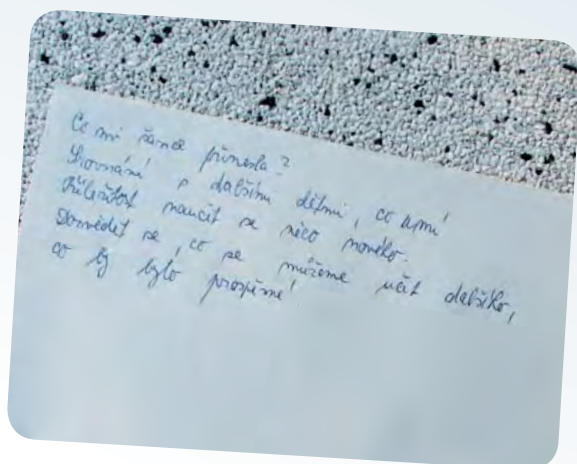 Co mi šance přinesla?
Srovnání s dalšími dětmi, co umí
Příležitost naučit se něco nového.
Dozvědět se, co se můžeme učit dalšího,
co by bylo prospěšné